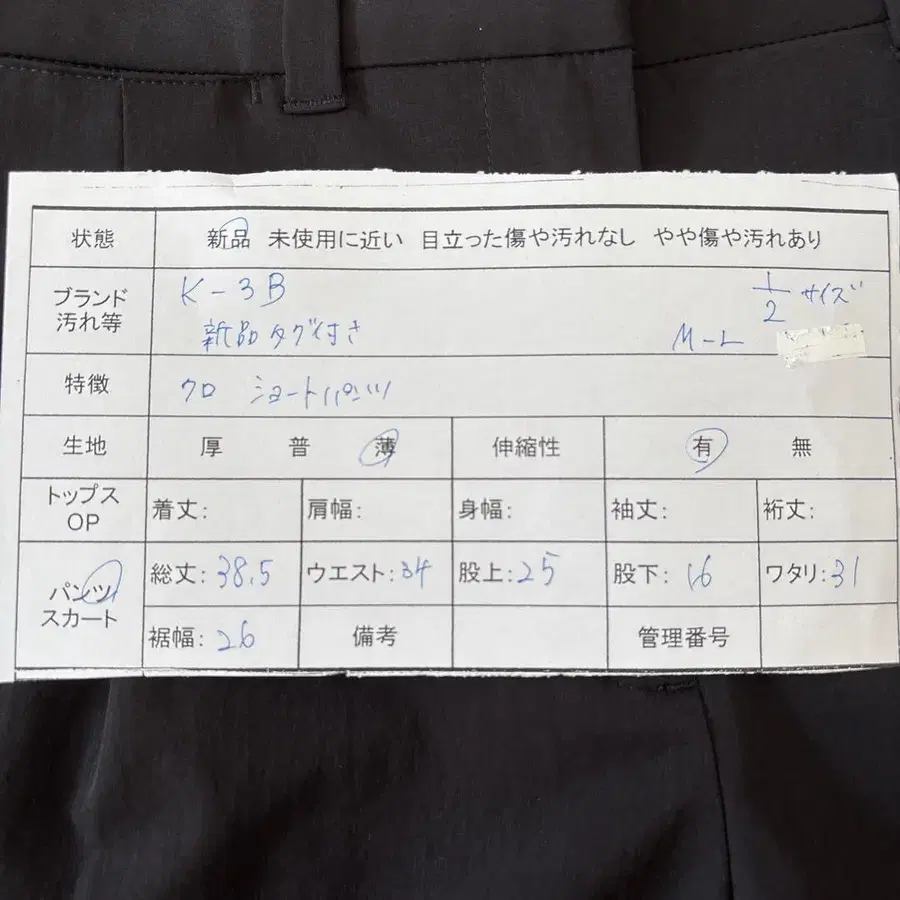 状態 新品 未使用に近い 目立った傷や汚れなし やや傷や汚れあり
ブランド K-3B 1/2 サイズ
汚れ等 新品タグ付き M-L
特徴 クロ ショートパンツ
生地 厚 普 薄 伸縮性 有 無
トップス
OP 着丈: 肩幅: 身幅: 袖丈: 裄丈:
パンツ 総丈: 38.5 ウエスト: 34 股上: 25 股下: 16 ワタリ: 31
スカート 裾幅: 26 備考 管理番号